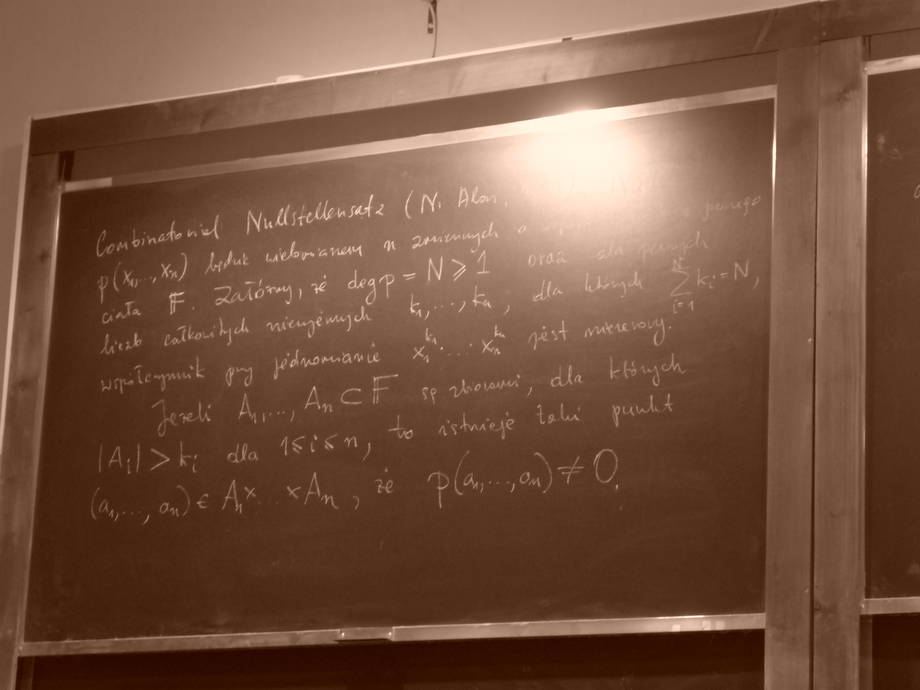 Combinatorial Nullstellensatz (N. Alon,
p(x₁,...,xₙ) będzie wielomianem n zmiennych o pewnego
ciała 𝔽. Załóżmy, że deg p = N ⩾ 1 oraz dla pewnych
liczb całkowitych nieujemnych k₁,...,kₙ, dla których ∑ᵢ₌₁ⁿ kᵢ = N,
współczynnik przy jednomianie x₁^k₁ ⋅...⋅ xₙ^kₙ jest niezerowy.
Jeżeli A₁,..., Aₙ ⊂ 𝔽 są zbiorami, dla których
|Aᵢ| > kᵢ dla 1 ≤ i ≤ n, to istnieje taki punkt
(a₁,..., aₙ) ∈ A₁ × ... × Aₙ, że p(a₁,..., aₙ) ≠ 0.